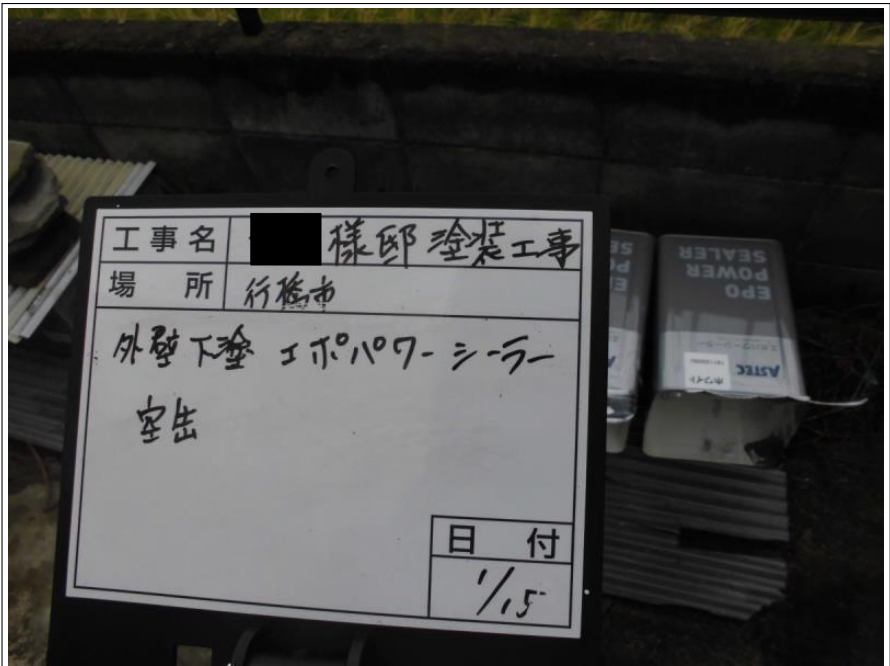 工事名 様邸 塗装工事
場所 行橋市
外壁下塗 エポパワーシーラー
空缶
日付
1/15
EPO
POWER
SEALER
エポパワーシーラー
ASTEC
ホワイト